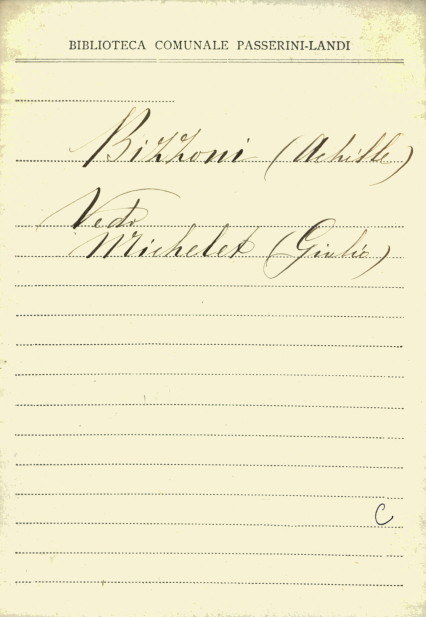 BIBLIOTECA COMUNALE PASSERINI-LANDI
Bizzoni (Achille)
Vedi
Michelet (Giulio)
C